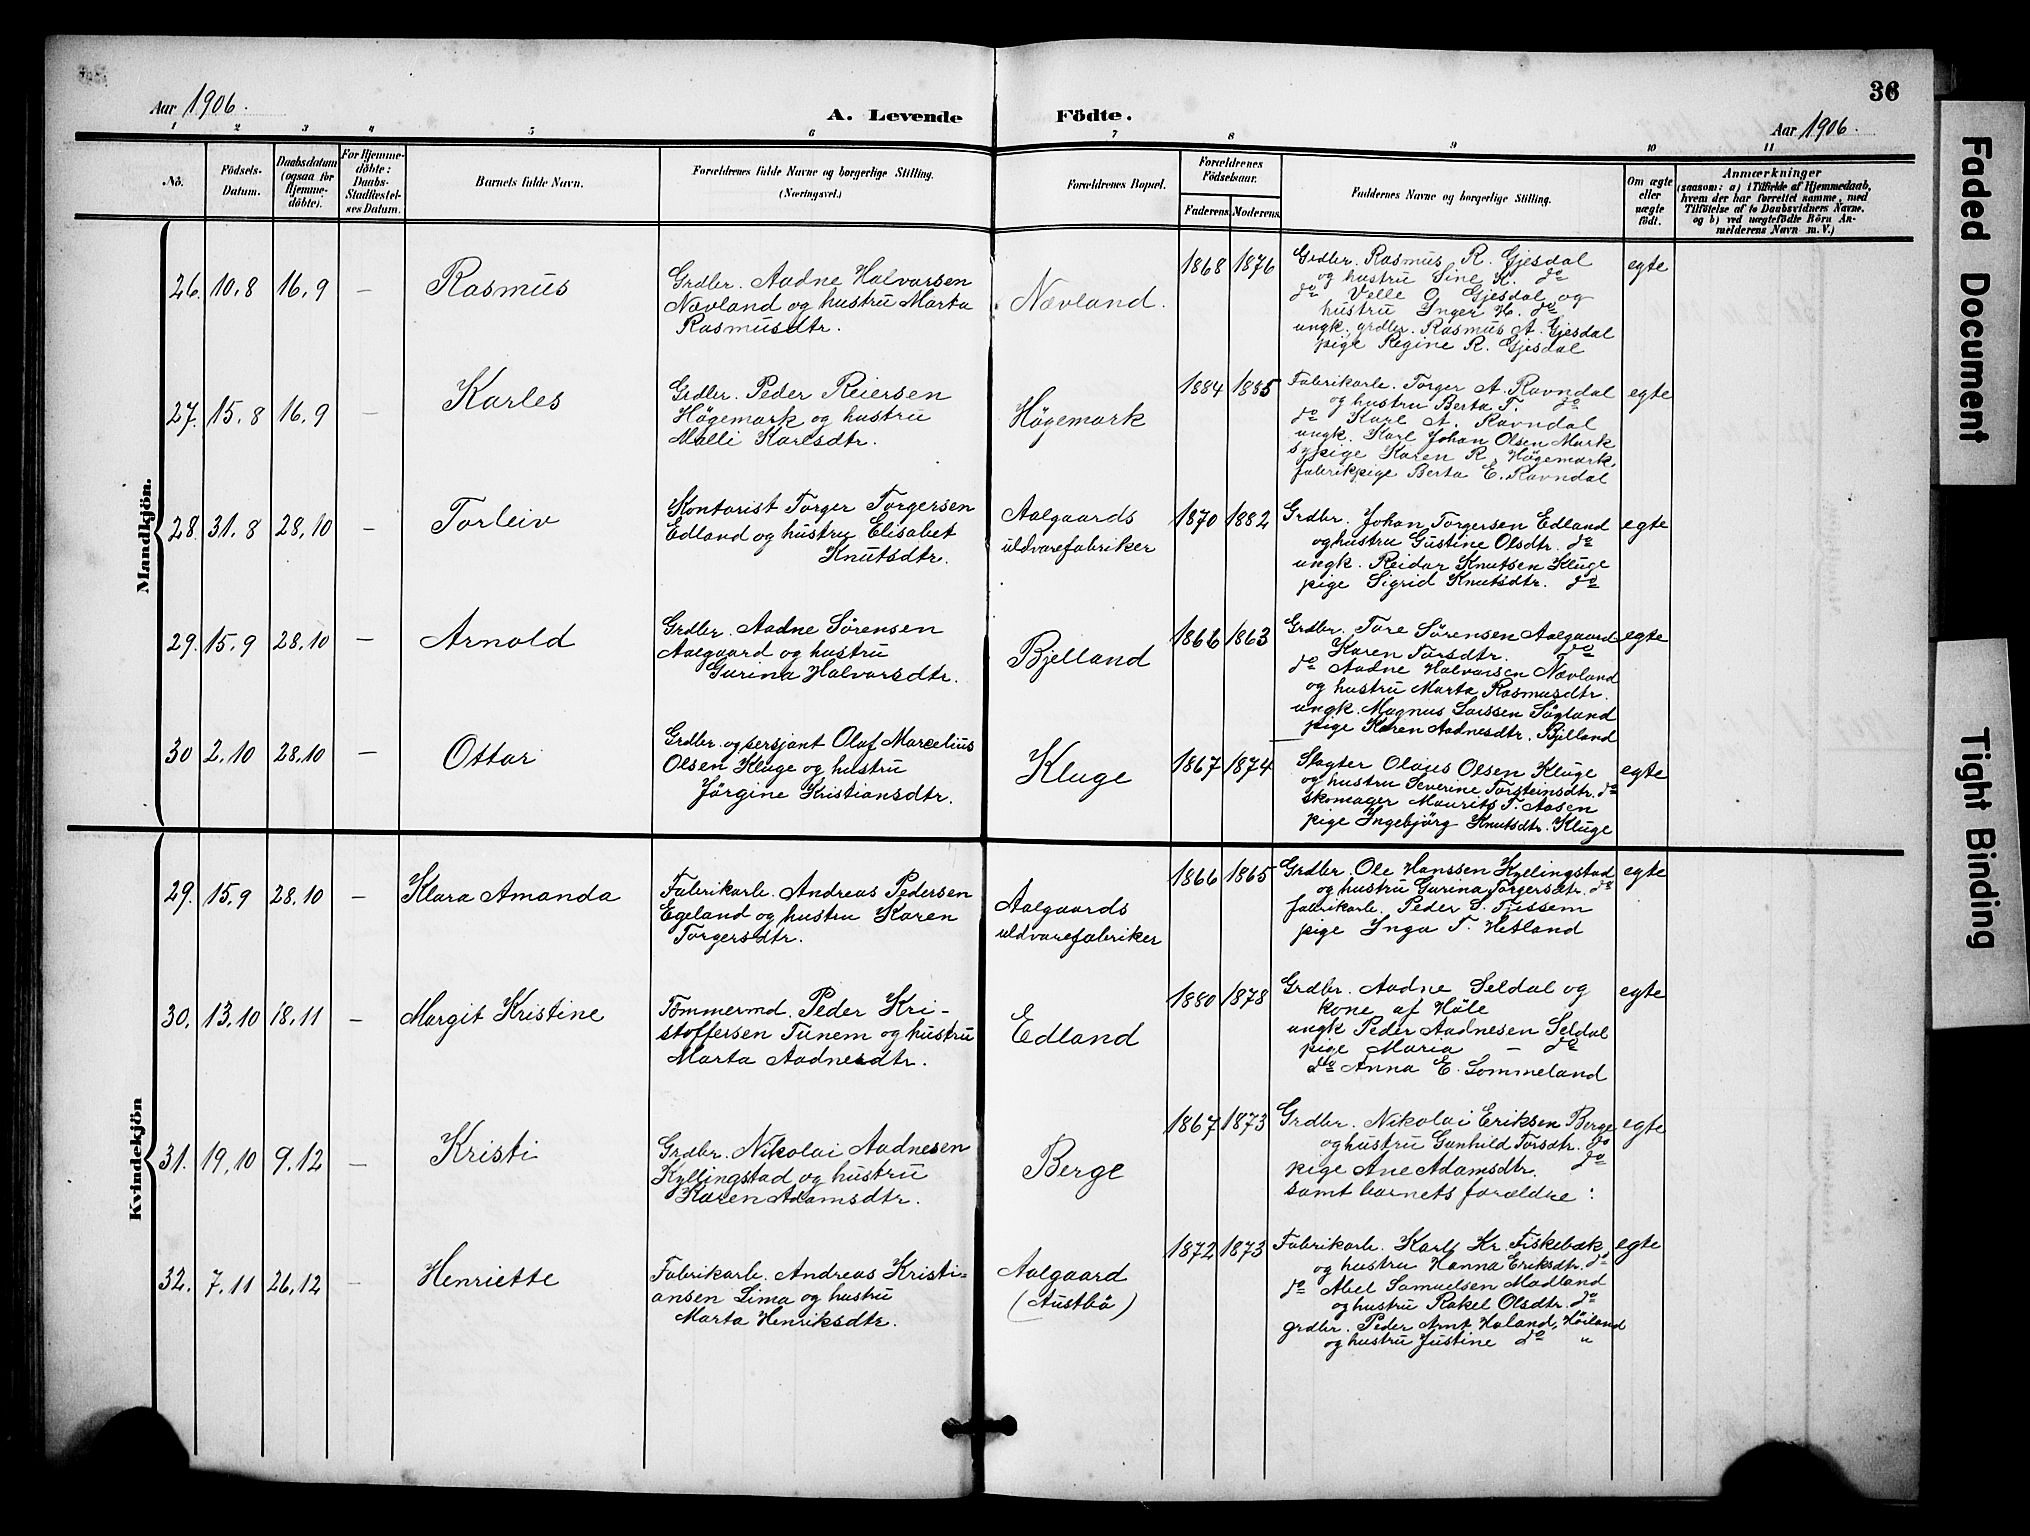 36
Aar 1906.
A. Levende Födte.
Aar 1906.
1 2 3 4 5 6 7 8 9 10 11
No.
Födsels-Datum.
Daabsdatum (ogsaa for Hjemme-döbte).
For Hjemme-döbte: Daabs-Stadfæstel-ses Datum.
Barnets fulde Navn.
Forældrenes fulde Navne og borgerlige Stilling.
(Næringsvei.)
Forældrenes Bopæl.
Forældrenes Födselsaar.
Faderens Moderens
Faddernes Navne og borgerlige Stilling.
Om ægte eller uægte födt.
Anmærkninger
(saasom: a) i Tilfælde af Hjemmedaab,
hvem der har forrettet samme, med
Tilföielse af to Daabsvidners Navne,
og b) ved uægtefödte Börn An-
melderens Navn m. V.)
Mandkjön.
26. 10.8 16.9 — Rasmus
Grdbr. Aadne Halvarsen
Nævland og hustru Marta
Rasmusdtr.
Nævland.
1868 1876
Grdbr. Rasmus R. Gjesdal
og hustru Sine K. do
do Velle O. Gjesdal og
hustru Inger H. do
ungk. grdbr. Rasmus A. Gjesdal
pige Regine R. Gjesdal
egte
27. 15.8 16.9 — Karles
Grdbr. Peder Reiersen
Högemark og hustru
Malli Karlsdtr.
Högemark
1884 1885
Fabrikarb. Torger A. Ravndal
og hustru Berta T. do
do Karl A. Ravndal
ungk. Karl Johan Olsen Mark
sypige Karen R. Högemark,
fabrikpige Berta E. Ravndal
egte
28. 31.8 28.10 — Torleiv
Kontorist Torger Torgersen
Edland og hustru Elisabet
Knutsdtr.
Aalgaards
uldvarefabriker
1870 1882
Grdbr. Johan Torgersen Edland
og hustru Gustine Olsdtr. do
ungk. Reidar Knutsen Kluge
pige Sigrid Knutsdtr. do
egte
29. 15.9 28.10 — Arnold
Grdbr. Aadne Sörensen
Aalgaard og hustru
Gurina Halvarsdtr.
Bjelland
1866 1863
Grdbr. Tore Sörensen Aalgaard
Karen Torsdtr. do
do Aadne Halvarsen Nævland
og hustru Marta Rasmusdtr.
ungk. Magnus Larssen Sögland
pige Karen Aadnesdtr. Bjelland
egte
30 2.10 28.10 — Ottar
Grdbr. og sersjant Olaf Marcelius
Olsen Kluge og hustru
Jörgine Kristiansdtr.
Kluge
1867 1874
Slagter Olaus Olsen Kluge
og hustru Severine Torsteinsdtr. do
skomager Maurits T. Aasen
pige Ingebjörg Knutsdtr. Kluge
egte
Kvindekjön
29. 15.9 28.10 — Klara Amanda
Fabrikarb. Andreas Pedersen
Egeland og hustru Karen
Torgersdtr.
Aalgaards
uldvarefabriker
1866 1865
Grdbr. Ole Hanssen Kyllingstad
og hustru Gurina Torgersdtr. do
fabrikarb. Peder S. Tjessem
pige Inga T. Hetland
egte
30. 13.10 18.11 — Margit Kristine
Tömmermd. Peder Kri-
stoffersen Tunem og hustru
Marta Aadnesdtr.
Edland
1880 1878
Grdbr. Aadne Seldal og
kone af Höle
ungk Peder Aadnesen Seldal
pige Maria — do
do Anna E. Sommeland
egte
31. 19.10 9.12 — Kristi
Grdbr. Nikolai Aadnesen
Kyllingstad og hustru
Karen Adamsdtr.
Berge
1867 1873
Grdbr. Nikolai Eriksen Berge
og hustru Gunhild Torsdtr. do
pige Ane Adamsdtr. do
samt barnets forældre.
egte
32. 7.11 26.12 — Henriette
Fabrikarb. Andreas Kristi-
ansen Lima og hustru
Marta Henriksdtr.
Aalgaard
(Austbö)
1872 1873
Fabrikarb. Karl Kr. Fiskebæk
og hustru Hanna Eriksdtr. do
do Abel Samuelsen Madland
og hustru Rakel Olsdtr. do
grdbr. Peder Arnt Haland, Höiland
og hustru Justine do "
egte
Faded Document
Tight Binding